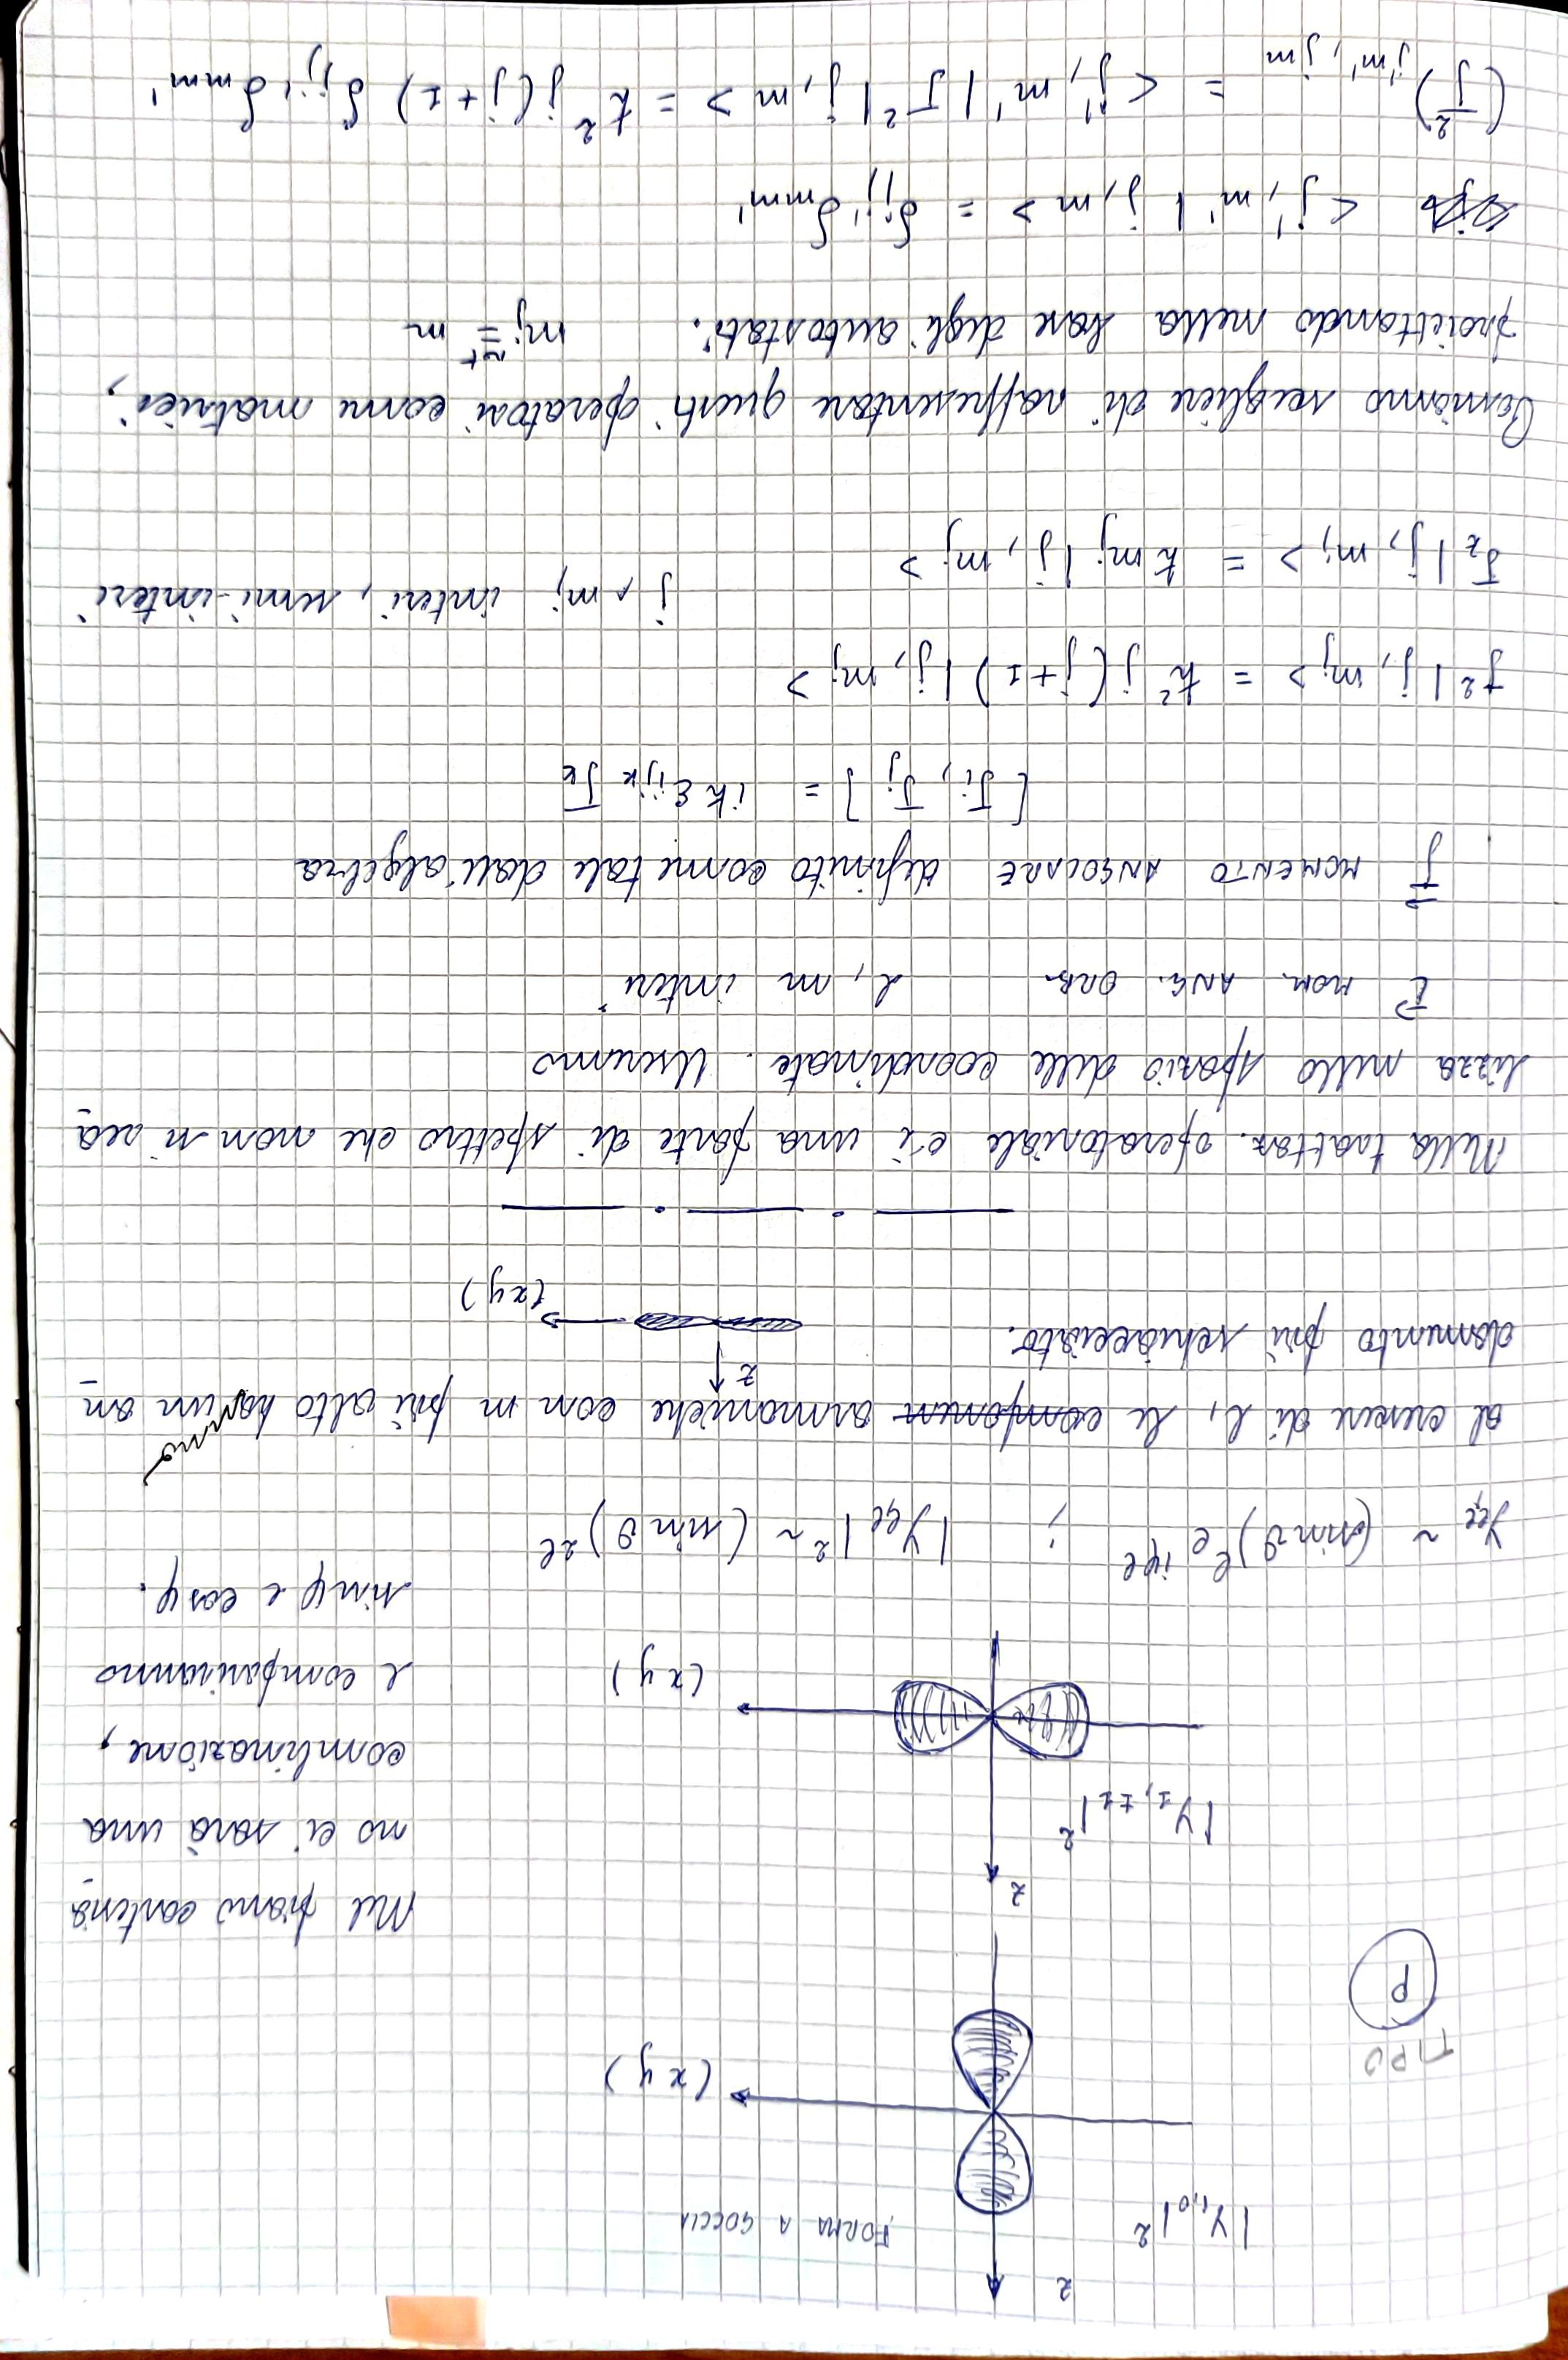 z
|Y₁,₀|² FORMA A GOCCIA
(x y)
TIPO
P
z
|Y₁,±₁|²
(x y)
Nel piano cartesia
no ci sarà una
combinazione,
e compariranno
sin φ e cos φ.
Yₗ,ₗ ~ (sin ϑ)^ℓ e^{iφℓ} ; |Yₗ,ₗ|² ~ (sin ϑ)^{2ℓ}
al crescere di ℓ, le componen armoniche con m più alto hanno un an
damento più schiacciato.
z
(xy)
Nella trattaz. operatoriale c'è una parte di spettro che non si rea
lizza nello spazio delle coordinate. Useremo
L⃗ MOM. ANG. ORB. ℓ, m interi
J⃗ MOMENTO ANGOLARE definito come tale dall'algebra
[Jᵢ, Jⱼ] = iħ εᵢⱼₖ Jₖ
J² |j, mⱼ> = ħ² j(j+1) |j, mⱼ>
j, mⱼ interi, semi-interi
J_z |j, mⱼ> = ħ mⱼ |j, mⱼ>
Possiamo scegliere di rappresentare questi operatori come matrici,
proiettando nella base degli autostati. mⱼ = m
<j', m' | j, m> = δ_{jj'} δ_{mm'}
(J²)_{j'm', jm} = <j', m' | J² | j, m> = ħ² j(j+1) δ_{jj'} δ_{mm'}